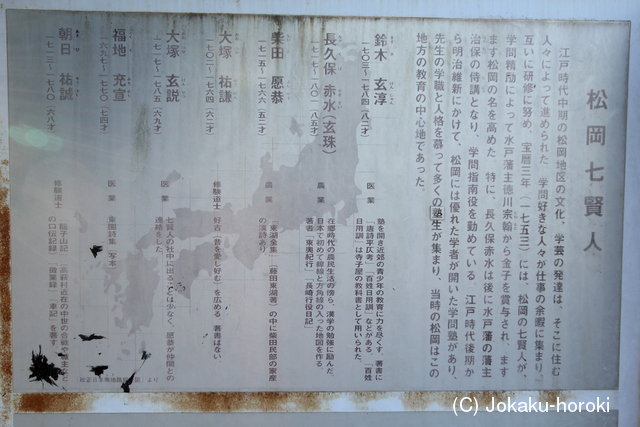 松岡七賢人
江戸時代中期の松岡地区の文化、学芸の発達は、そこに住む
人々によって進められた 学問好きな人々が仕事の余暇に集まり、
互いに研修に努め、宝暦三年（一七五三）には、松岡の七賢人が、
学問精励によって水戸藩主徳川宗翰から金子を賞与され、ます
ます松岡の名を高めた 特に、長久保赤水は後に水戸藩の藩主
治保の侍講となり、学問指南役を勤めている 江戸時代後期か
ら明治維新にかけて、松岡には優れた学者が開いた学問塾があり、
先生の学職と人格を慕って多くの塾生が集まり、当時の松岡はこの
地方の教育の中心地であった。
鈴木 玄淳
一七〇三～一七八四（八二才）
医業
塾を開き近郊の青少年の教育に力を尽くす 著書に
「唐詩平仄考」「百姓日用訓」などがある 「百姓
日用訓」は寺子屋の教科書として用いられた。
長久保 赤水（玄珠）
一七一七～一八〇一（八五才）
農業
在郷時代の農民生活の傍ら、漢学の勉強に励んだ、
日本で初めて緯線と方角線の入った地図を作る
著書「東奥紀行」「長崎行役日記」
柴田 愿恭
一七一五～一七六六（五二才）
農業
「東湖全集」（藤田東湖著）の中に柴田民部の家産
の逸話あり
大塚 祐謙
一七〇三～一七六四（六二才）
修験道士
好古（昔を愛し好む）を広める、著書はない。
大塚 玄説
一七一七～一七八五（六九才）
医業
七賢人の社中に出ることは少なく、愿恭が仲間との
連絡をした
福地 充宣
一六九七～一七七〇（七四才）
医業
東園詩集（写本）
朝日 祐誠
一七一三～一七八〇（六八才）
修験道士
(C) Jokaku-horoki